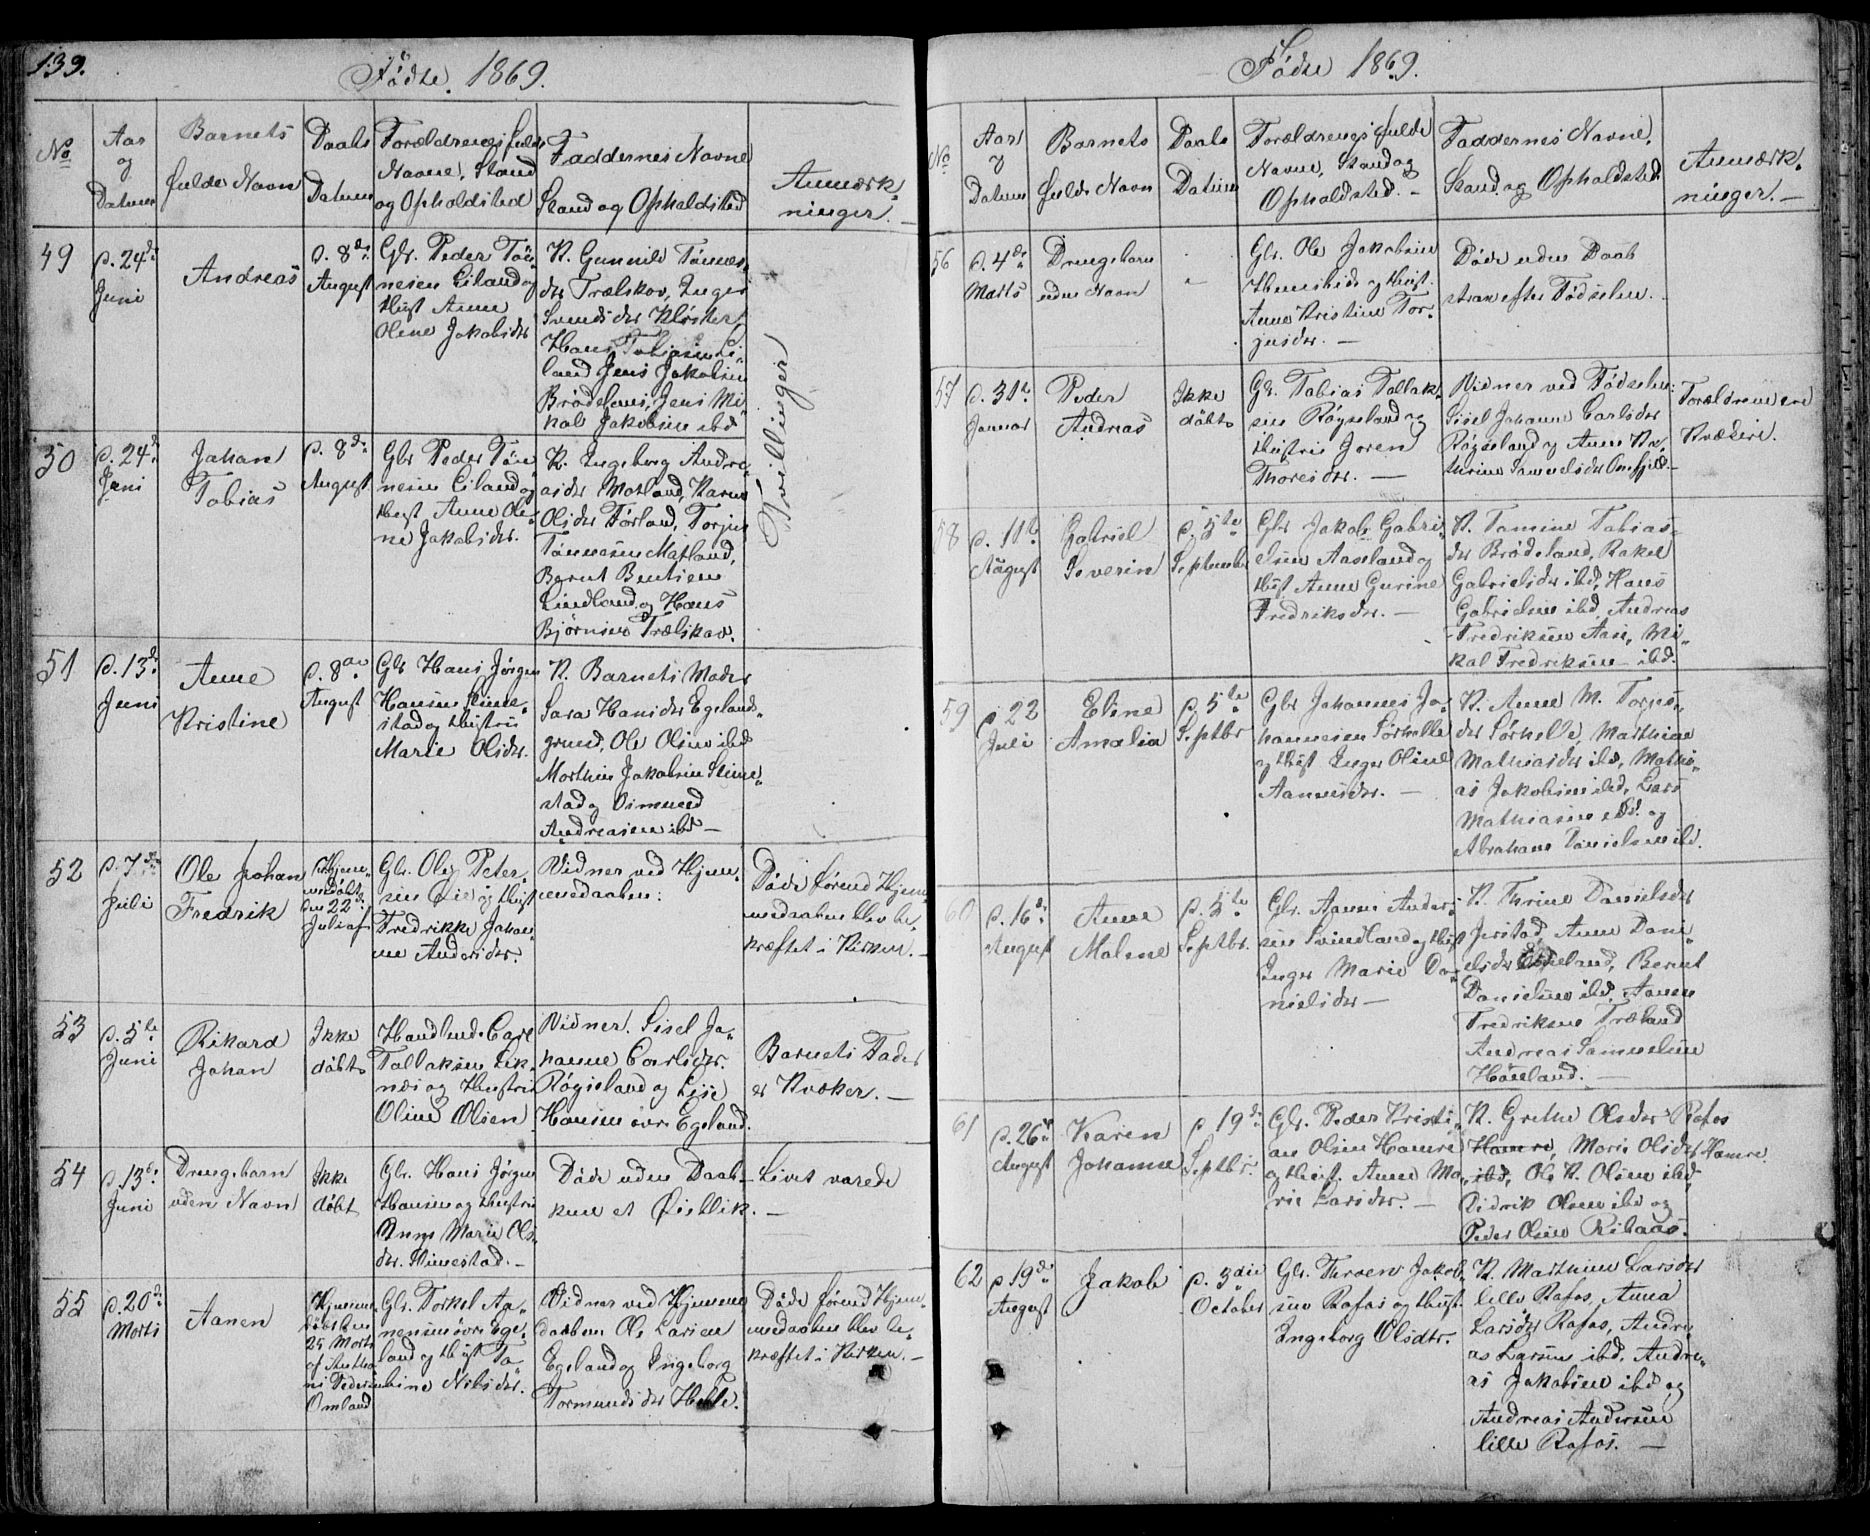 139.
Fødte. 1869.
No
Aar
og
Datum
Barnets
fulde Navn
Daabs
Datum
Forældrenes fulde
Navne, Stand
og Opholdsted
Faddernes Navne
Stand og Opholdsted
Anmærk-
ninger.
49
d. 24de
Juni
Andreas
d. 8de
August
Gbr. Peder Tøn-
nesen Eiland og
Hust Anne
Oline Jakobsdtr
K. Gunnild Tønnes-
dtr Trælskov, Inger
Svendsdtr Kloster,
Hans Tobiasen Ei-
land Jens Jakobsen
Brødeland, Jens Mi-
kal Jakobsen ibd
Tvillinger
50
d. 24de
Juni
Johan
Tobias
d. 8de
August
Gbr Peder Tøn-
nesen Eiland og
Hust Anne Oli-
ne Jakobsdtr.
K. Ingeborg Andre-
asdtr Motland, Karen
Olsdtr Førland, Torjus
Tønnesen Motland,
Bernt Bentsen
Lindland og Hans
Bjørnsen Trælskov.
51
d. 13de
Juni
Anne
Kristine
d. 8de
August
Gbr Hans Jørgen
Hansen Stime-
stad og Hustru
Marie Olsdtr.
K. Barnets Moder
Sara Hansdtr Egelands-
grund, Ole Olsen ibd
Morthen Jakobsen Stime-
stad og Osmund
Andreasen ibd —
52
d. 7de
Juli
Ole Johan
Fredrik
Hjem-
medøbt
den 22de
Juli af
Gbr. Ole Peter-
sen Lie og Hust
Fredrikke Johan-
ne Andersdtr.
Vidner ved Hjem-
medaaben:
Døde førend Hjem-
medaaben blev be-
kræftet i Kirken. —
53
d. 5te
Juni
Rikard
Johan
Ikke
døbt
Handlende Carl
Tallaksen Lik-
næs og Hustru
Oline Olsen
Vidner. Sisel Jo-
hanne Carlsdtr.
Røgseland og Lise
Hansen øvre Egeland.
Barnets Fader
er Kvæker. —
54
d. 13de
Juni
Drengebarn
uden Navn
Ikke
døbt
Gbr. Hans Jørgen
Hansen og Hustru
Anne Marie Ols-
dtr. Stimestad. —
Døde uden Daab —
kun et Øieblik. —
Livet varede
55
d. 20de
Marts
Aanen
Hjemme-
døbt den
25 Marts
af Antho-
ni Pedersen
Omland
Gbr. Torkel Aa-
nensen øvre Ege-
land og Hust Ta-
bine Nilsdtr.
Vidner ved Hjemme
daaben Ole Larsen
Egeland og Ingeborg
Tormundsdtr Helle.
Døde førend Hjem-
medaaben blev be-
kræftet i Kirken. —
Fødte 1869.
No
Aar
og
Datum
Barnets
fulde Navn
Daabs
Datum
Forældrenes fulde
Navne, Stand og
Opholdsted. —
Faddernes Navne,
Stand og Opholdsted
Anmærk-
ninger. —
56
d. 4de
Marts
Drengebarn
uden Navn
Gbr. Ole Jakobsen
Homsheide og Hust.
Anne Kristine Tor-
jusdtr. —
Døde uden Daab
strax efter Fødselen.
57
d. 31te
Januar
Peder
Andreas
Ikke
døbt
Gbr. Tobias Tallak-
sen Røgseland og
Hustru Joren
Thoresdtr. —
Vidner ved Fødselen:
Sisel Johanne Carlsdtr
Røgseland og Anne Ka-
thrine Samuelsdtr Omfjeld. —
Forældrene ere
Kvækere.
58
d. 11te
August
Gabriel
Severin
d. 5te
September
Gbr Jakob Gabri-
elsen Aaseland og
Hust Anne Gurine
Fredriksdtr. —
K. Tamine Tobias-
dtr Brødeland, Rakel
Gabrielsdtr ibd, Hans
Gabrielsen ibd, Andreas
Fredriksen Aase, Mi-
kal Fredriksen ibd.
59
d 22
Juli
Eline
Amalia
d. 5te
Septbr
Gbr Johannes Jo-
hannesen Sørhelle
og Hust Inger Oline
Aanensdtr. —
K. Anne M. Torjus-
dtr Sørhelle, Marthine
Mathiasdtr ibd, Mathi-
as Jakobsen ibd, Lars
Mathiasen ibd. og
Abraham Danielsen ibd.
60
d. 16de
August
Anne
Malene
d. 5te
Septbr.
Gbr. Aanen Ander-
sen Svindland og Hust
Inger Marie Da-
nielsdtr —
K. Thrine Danielsdtr
Jerstad, Anne Dani-
elsdtr Høieland, Bernt
Danielsen ibd, Aanen
Fredriksen Træland
Andreas Samuelsen
Høieland. —
61
d. 26de
August
Karen
Johanne
d 19de
Septbr.
Gbr. Peder Kristi-
an Olsen Hamre
og Hust. Anne Ma-
rie Larsdtr. —
K. Grethe Olsdtr Rafos
Hamre, Marie Olsdtr Hamre
ibd, Ole K. Olsen ibd,
Didrik Olsen ibd og
Peder Olsen Ribaas.
62
d 19de
August
Jakob
d. 3die
October
Gbr. Throen Jakob-
sen Rafos og Hust
Ingeborg Olsdtr.
K. Marthine Larsdtr
lille Rafos, Anna
Larsdtr Rafos, Andre-
as Larsen ibd, Andre-
as Jakobsen ibd og
Andreas Andersen
lille Rafos. —